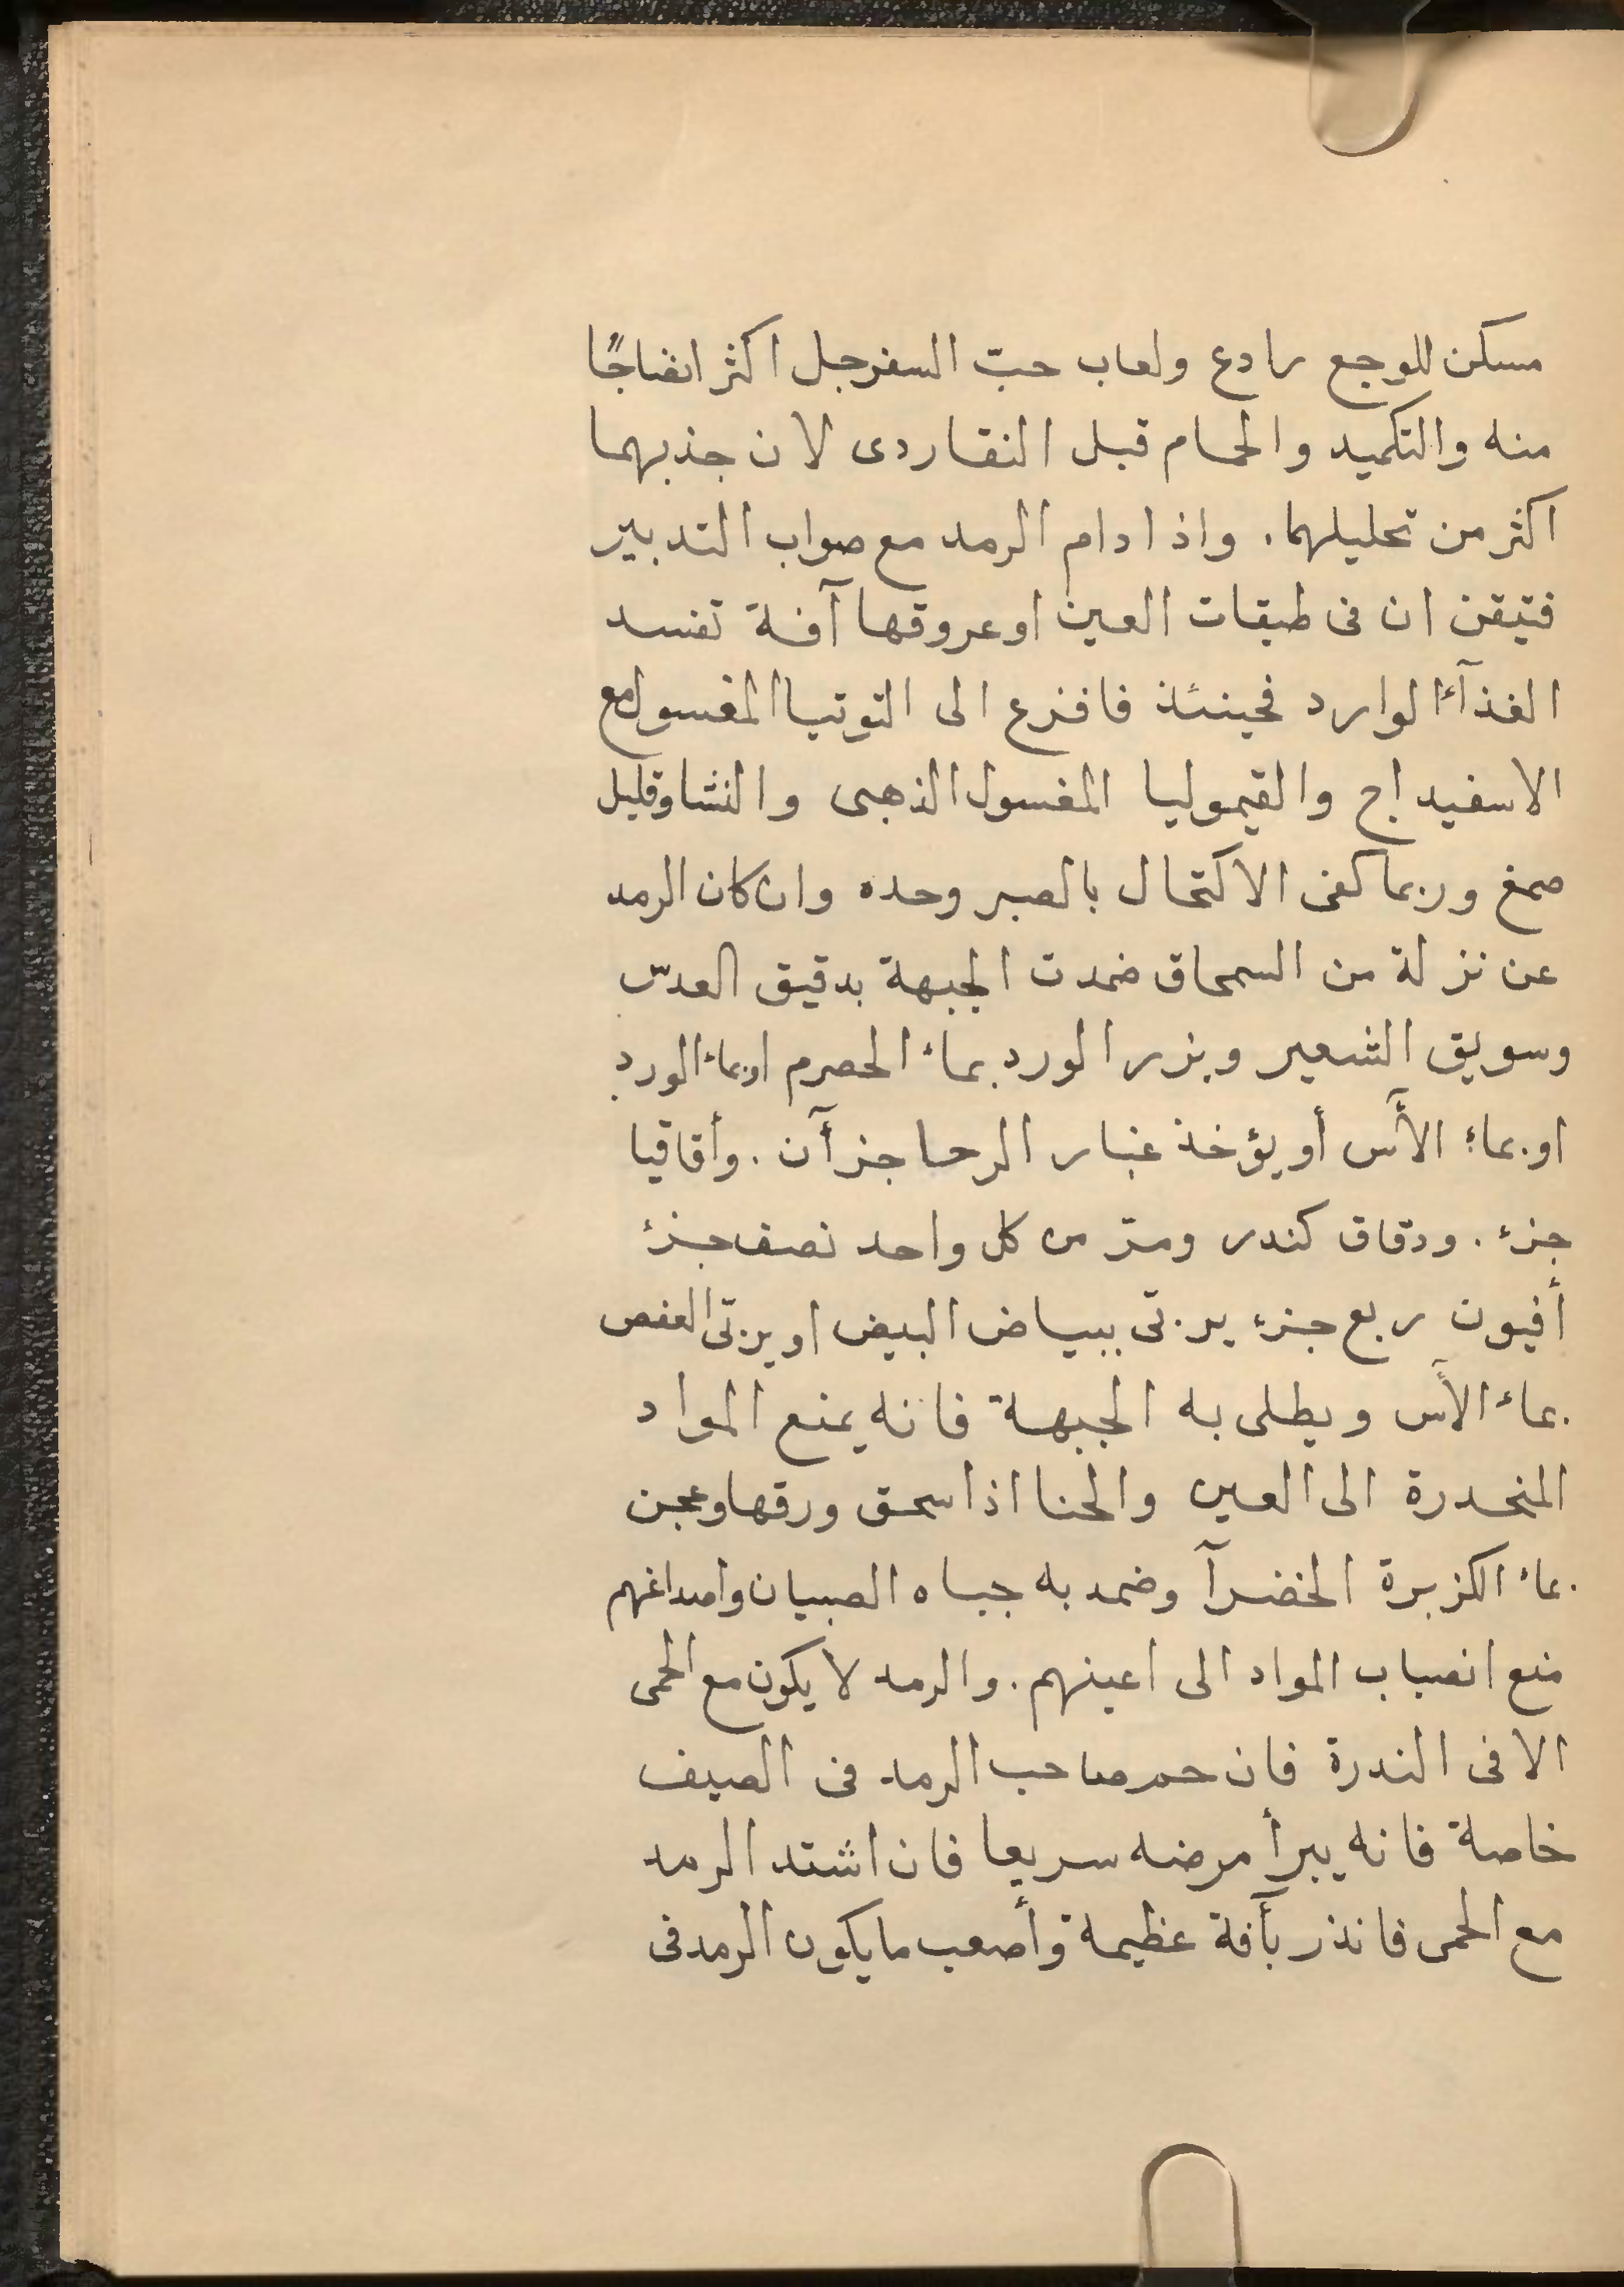 مسكن للوجع رادع ولعاب حبّ السفرجل اكثر انضاجًا
منه والتكميد والحمام قبل النقا ردى لان جذبهما
اكثر من تحليلهما. واذا دام الرمد مع صواب التدبير
فتيقن ان فى طبقات العين او عروقها آفة تفسد
الغذآء الوارد فحينئذ فافزع الى التوتيا المغسول مع
الاسفيداج والقيموليا المغسول الذهبى والنشا وقليل
صمغ وربما كفى الاكتحال بالصبر وحده وان كان الرمد
عن نزلة من السمحاق ضمدت الجبهة بدقيق العدس
وسويق الشعير وبزر الورد بماء الحصرم او بماء الورد
او بماء الآس أو يؤخذ غبار الرحا جزآن. وأقاقيا
جزء. ودقاق كندر ومرّ من كل واحد نصف جزء
أفيون ربع جزء يربّى ببياض البيض او يربّى العفص
بماء الآس ويطلى به الجبهة فانه يمنع المواد
المنحدرة الى العين والحنا اذا سحق ورقها وعجن
بماء الكزبرة الخضرآ وضمد به جباه الصبيان واصداغهم
منع انصباب المواد الى اعينهم. والرمد لا يكون مع الحمى
الا فى الندرة فان حم صاحب الرمد فى الصيف
خاصة فانه يبرأ مرضه سريعا فان اشتد الرمد
مع الحمى فانذر بآفة عظيمة وأصعب ما يكون الرمد فى